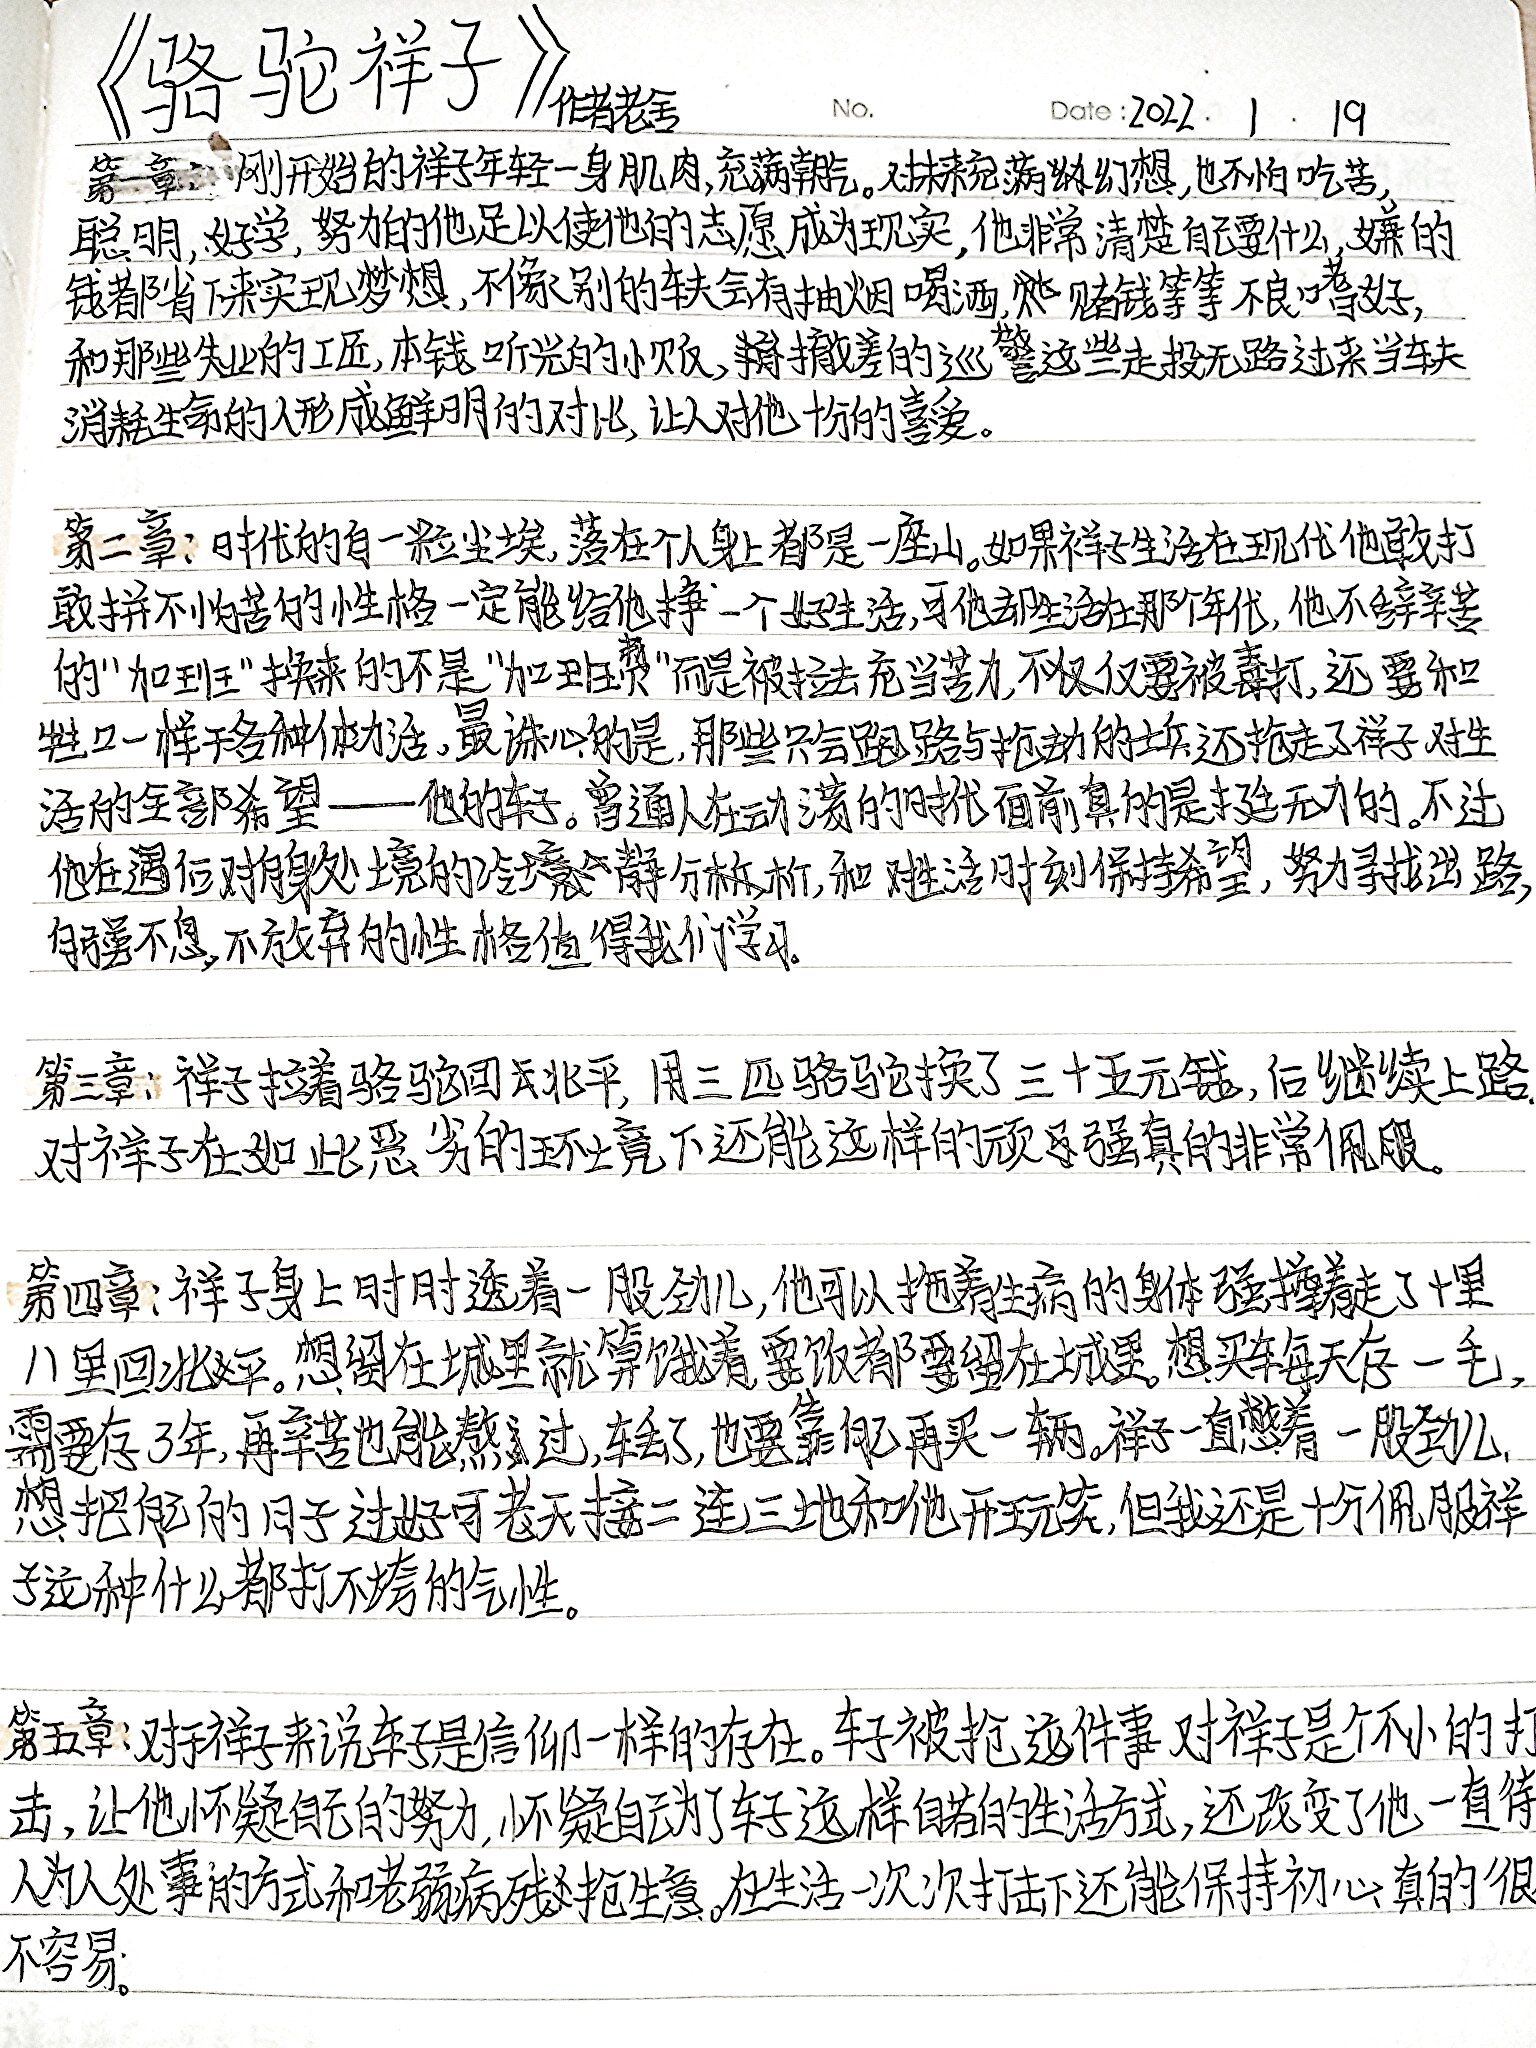 《骆驼祥子》作者老舍 No. Date: 2022. 1. 19
第一章: 刚开始的祥子年轻一身肌肉,充满朝气。对未来充满幻想,也不怕吃苦,
聪明,好学,努力的他足以使他的志愿成为现实,他非常清楚自己要什么,嫌的
钱都省下来实现梦想,不像别的车夫会有抽烟喝酒,赌钱等等不良嗜好,
和那些失业的工匠,本钱吃光的小贩,撤差的巡警这些走投无路过来当车夫
消耗生命的人形成鲜明的对比,让人对他十份的喜爱。
第二章:时代的自一粒尘埃,落在个人身上都是一座山。如果祥子生活在现代他敢打
敢拼不怕苦的性格一定能给他挣一个好生活,可他却生活在那个年代,他不辞辛苦
的"加班"换来的不是"加班费"而是被拉去充当苦力,不仅仅要被毒打,还要和
牲口一样干各种体力活。最诛心的是,那些只会跑路与抢劫的士兵还抢走了祥子对生
活的全部希望——他的车子。普通人在动荡的时代面前真的是挺无力的。不过
他在遇位对自身处境的冷静分析,和对生活时刻保持希望,努力寻找出路,
自强不息,不放弃的性格值得我们学习。
第三章:祥子拉着骆驼回去北平,用三匹骆驼换了三十五元钱,后继续上路.
对祥子在如此恶劣的环境下还能这样的顽强真的非常佩服。
第四章:祥子身上时时透着一股劲儿,他可以拖着生病的身体强撑着走了十里
八里回北平。想留在城里就算饿着要饭都要留在城里。想买车每天存一毛,
需要存3年,再辛苦也能熬过,车丢了,也要靠自己再买一辆。祥子一直憋着一股劲儿,
想把自己的日子过好可老天接二连三地和他开玩笑,但我还是十分佩服祥
子这种什么都打不垮的气性。
第五章:对于祥子来说车子是信仰一样的存在。车子被抢这件事对祥子是个不小的打
击,让他怀疑自己的努力,怀疑自己为了车子这样自苦的生活方式,还改变了他一直待
人为人处事的方式和老弱病残抢生意。在生活一次次打击下还能保持初心真的很
不容易。